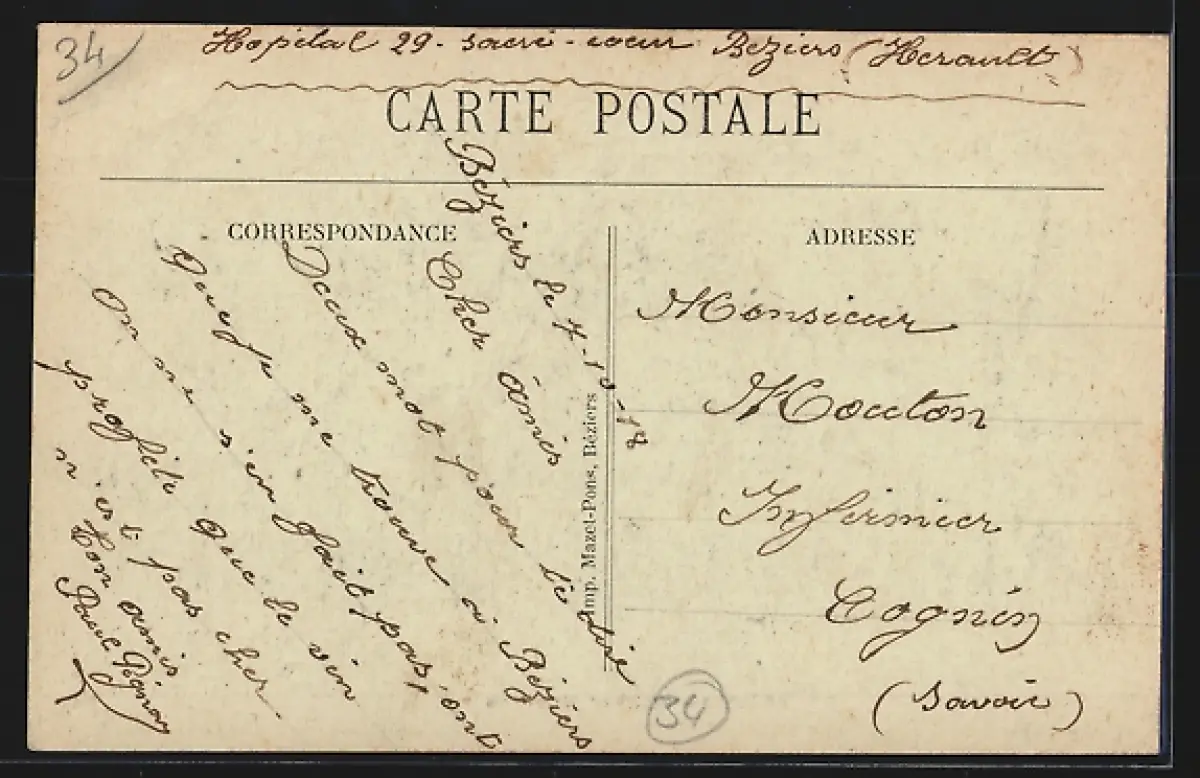 34
Hopital 29 - sacré - coeur Beziers (Herault)
CARTE POSTALE
CORRESPONDANCE
Béziers le 7-10-18
Cher âmis
Deux mot pour te dire
que je me trouve a Béziers
on ne s'en fait pas, ont
profite que le vin
n'est pas cher.
Ton amis
Paul
Imp. Mazel-Pons, Béziers
ADRESSE
Monsieur
Mouton
Infirmier
Cognin
(Savoie)
34